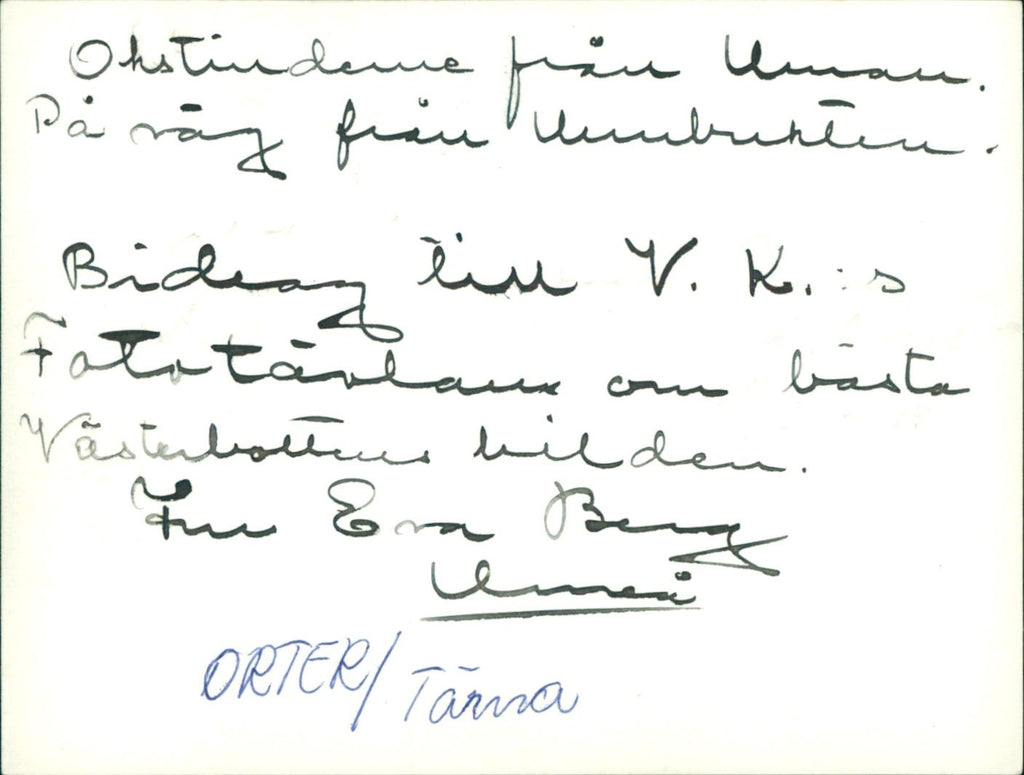 Okstinderne från Uman.
På väg från Umbukten.
Bidrag till V. K. :s
Fototävlan om bästa
Västerbottens bilden.
Fru Eva Berg
Umeå
ORTER/Tärna